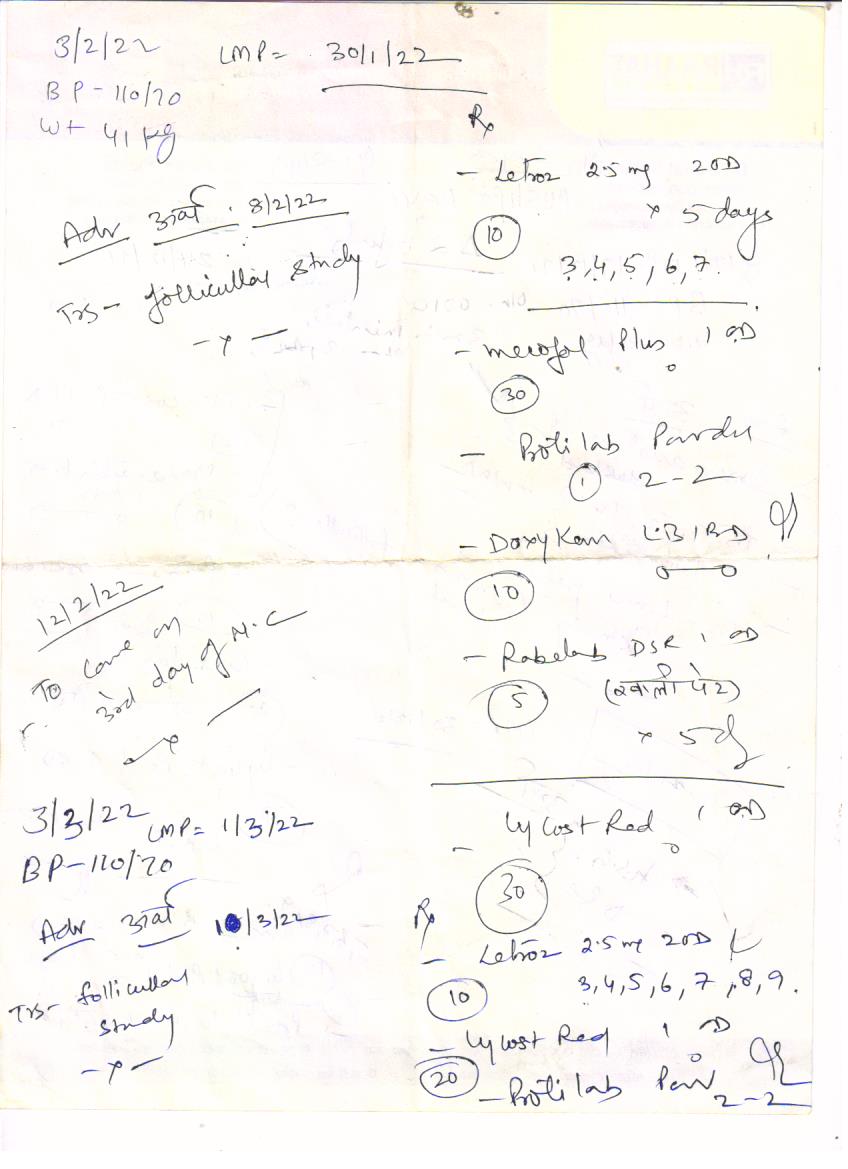 3/2/22 LMP = 30/1/22
BP - 110/70
Wt 41 kg
Rx
- Letroz 2.5 mg 2 OD
x 5 days
10
3, 4, 5, 6, 7.
Adv 8/2/22
TVS - follicullar study
- x -
- Mecofol Plus 1 OD
30
- Protilab Powder
1 2-2
- Doxy Kem LB 1 BD
10
12/2/22
To come on
3rd day of M.C
- x -
- Rabelab DSR 1 OD
5 (खाली पेट)
x 5 d
3/3/22 LMP = 1/3/22
BP - 110/70
- Lycost Red 1 OD
30
Adv 10/3/22
TVS - follicullar
study
- x -
Rx
- Letroz 2.5 mg 2 OD
10 3, 4, 5, 6, 7, 8, 9.
- Lycost Red 1 OD
20
- Protilab Pow
2-2